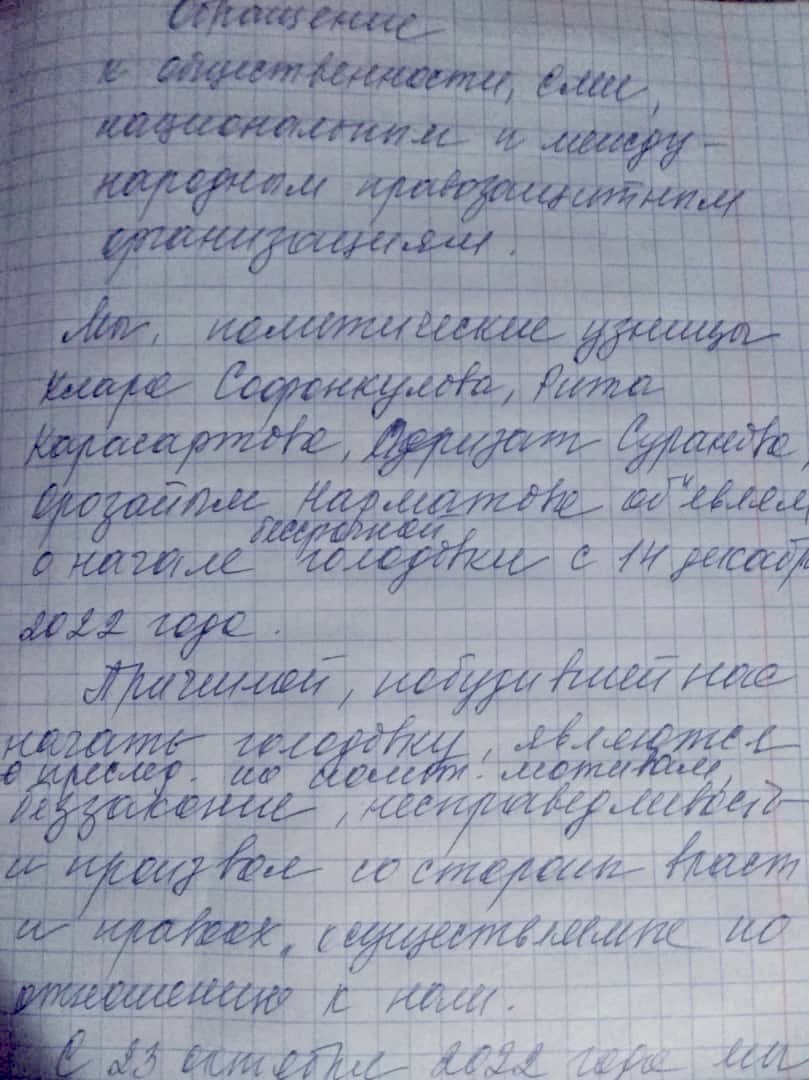 Обращение
к общественности, СМИ,
национальным и между-
народным правозащитным
организациям.
Мы, политические узницы
Клара Софронкулова, Рита
Карасартова, Перизат Суранова,
Орозайым Нарматова об"являем
бессрочной
о начале голодовки с 14 декабр
2022 года.
Причиной, побудившей нас
начать голодовку, являются
преслед. по полит. мотивам,
беззаконие, несправедливость
и произвол со стороны власт
и правоох., осуществляемые по
отношению к нам.
С 23 октября 2022 года мы